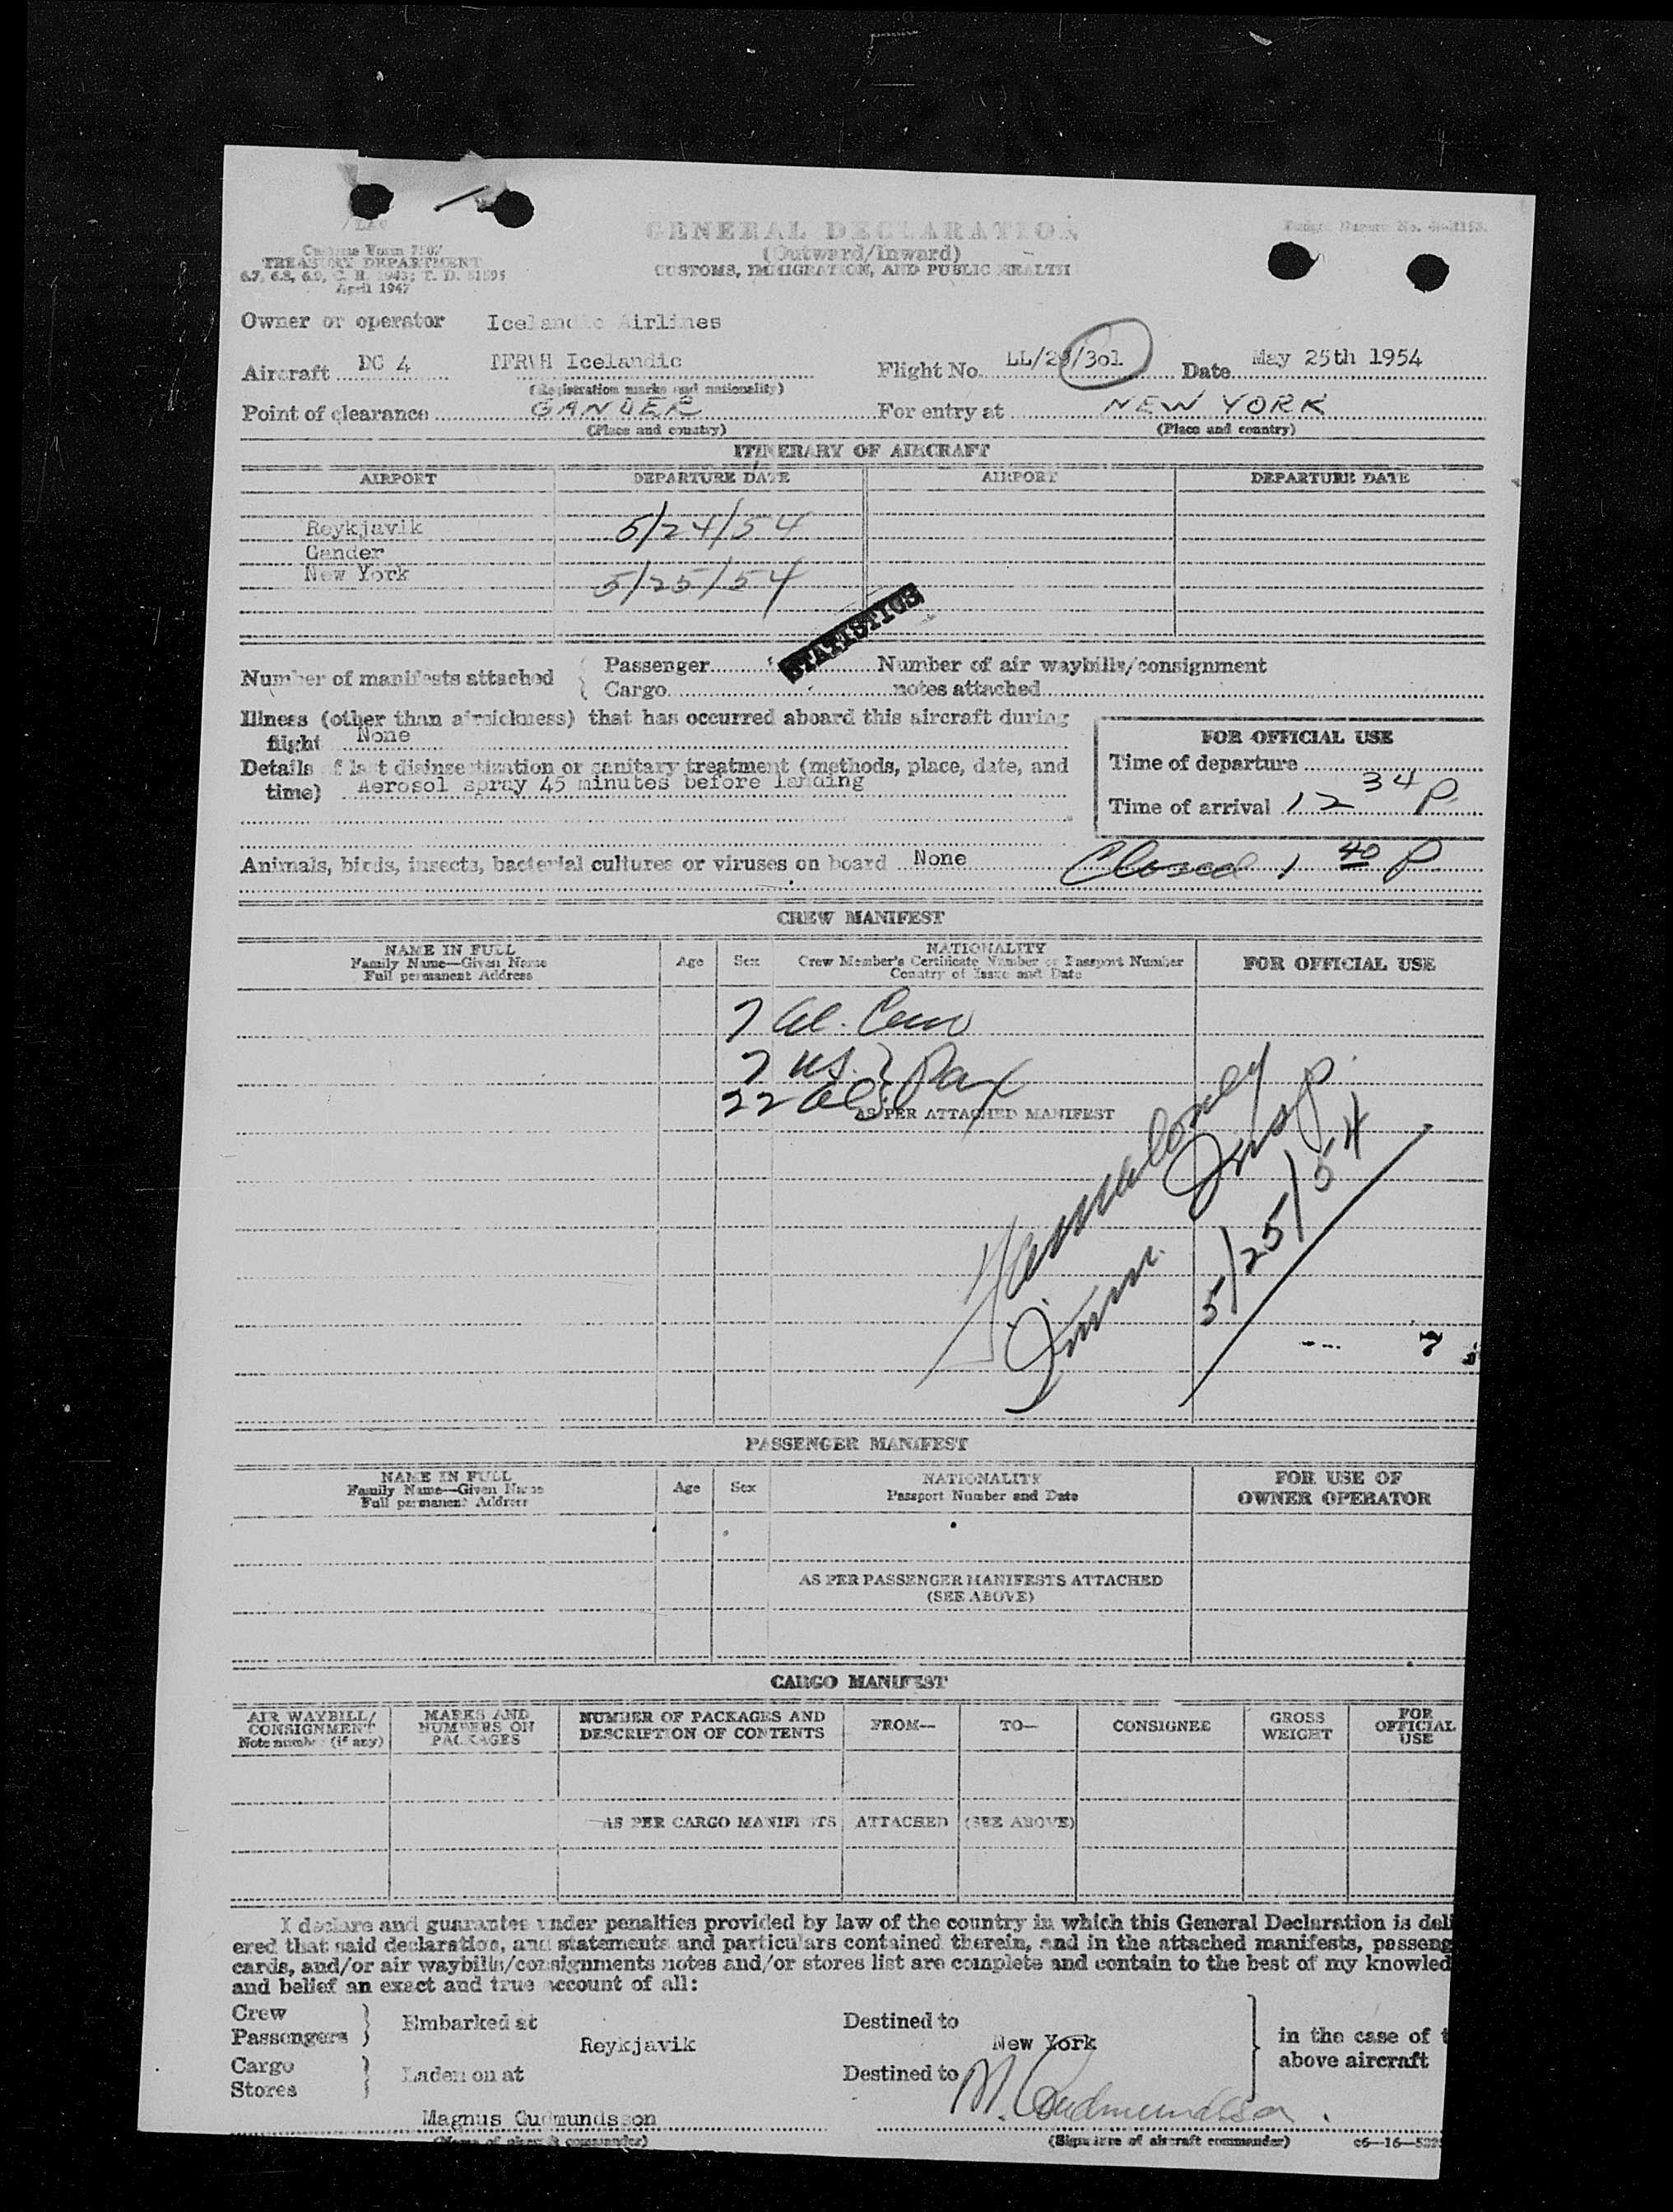 GENERAL DECLARATION
(Outward/Inward)
CUSTOMS, IMMIGRATION, AND PUBLIC HEALTH
Customs Form 7507
TREASURY DEPARTMENT
6.7, 6.8, 6.9, C. R. 1943; T. D. 51595
April 1947
Owner or operator Icelandic Airlines
Aircraft DC 4 Icelandic Flight No. LL/29/301 Date May 25th 1954
(Registration marks and nationality)
Point of clearance GANDER For entry at NEW YORK
(Place and country) (Place and country)
ITINERARY OF AIRCRAFT
AIRPORT DEPARTURE DATE AIRPORT DEPARTURE DATE
Reykjavik 5/24/54
Gander
New York 5/25/54
STATISTICS
Number of manifests attached { Passenger Number of air waybills/consignment
Cargo notes attached
Illness (other than airsickness) that has occurred aboard this aircraft during
flight None
FOR OFFICIAL USE
Details of last disinsectization or sanitary treatment (methods, place, date, and
time) Aerosol spray 45 minutes before landing
Time of departure
Time of arrival 12 34 P.
Animals, birds, insects, bacterial cultures or viruses on board None
Closed 1 40 P
CREW MANIFEST
NAME IN FULL
Family Name—Given Name
Full permanent Address
Age Sex
NATIONALITY
Crew Member's Certificate Number or Passport Number
Country of Issue and Date
FOR OFFICIAL USE
7 al. Crew
7 US. } Pax
22 al
AS PER ATTACHED MANIFEST
Imm. Insp.
5/25/54
7
PASSENGER MANIFEST
NAME IN FULL
Family Name—Given Name
Full permanent Address
Age Sex
NATIONALITY
Passport Number and Date
FOR USE OF
OWNER OPERATOR
AS PER PASSENGER MANIFESTS ATTACHED
(SEE ABOVE)
CARGO MANIFEST
AIR WAYBILL/
CONSIGNMENT
Note number (if any)
MARKS AND
NUMBERS ON
PACKAGES
NUMBER OF PACKAGES AND
DESCRIPTION OF CONTENTS
FROM— TO— CONSIGNEE
GROSS
WEIGHT
FOR
OFFICIAL
USE
AS PER CARGO MANIFESTS ATTACHED (SEE ABOVE)
I declare and guarantee under penalties provided by law of the country in which this General Declaration is deli
ered that said declaration, and statements and particulars contained therein, and in the attached manifests, passeng
cards, and/or air waybills/consignments notes and/or stores list are complete and contain to the best of my knowled
and belief an exact and true account of all:
Crew
Passengers } Embarked at Reykjavik Destined to New York
in the case of t
above aircraft
Cargo
Stores } Laden on at Destined to
Magnus Gudmundsson M. Gudmundsson
(Name of aircraft commander) (Signature of aircraft commander) c6—16—522